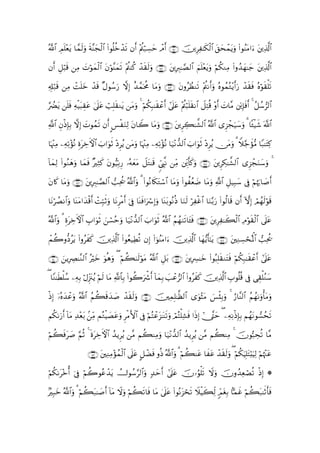 ٱلَّذِينَ ءَامَنُوا۟ وَيَمْحَقَ ٱلْكَـٰفِرِينَ ﴿١٤١﴾ أَمْ حَسِبْتُمْ أَن تَدْخُلُوا۟ ٱلْجَنَّةَ وَلَمَّا يَعْلَمِ ٱللَّهُ
ٱلَّذِينَ جَـٰهَدُوا۟ مِنكُمْ وَيَعْلَمَ ٱلصَّـٰبِرِينَ ﴿١٤٢﴾ وَلَقَدْ كُنتُمْ تَمَنَّوْنَ ٱلْمَوْتَ مِن قَبْلِ أَن
تَلْقَوْهُ فَقَدْ رَأَيْتُمُوهُ وَأَنتُمْ تَنظُرُونَ ﴿١٤٣﴾ وَمَا مُحَمَّدٌ إِلَّا رَسُولٌ قَدْ خَلَتْ مِن قَبْلِهِ
ٱلرُّسُلُ ۚ أَفَإِي۟ن مَّاتَ أَوْ قُتِلَ ٱنقَلَبْتُمْ عَلَىٰٓ أَعْقَـٰبِكُمْ ۚ وَمَن يَنقَلِبْ عَلَىٰ عَقِبَيْهِ فَلَن يَضُرَّ
ٱللَّهَ شَيْـًٔا ۗ وَسَيَجْزِى ٱللَّهُ ٱلشَّـٰكِرِينَ ﴿١٤٤﴾ وَمَا كَانَ لِنَفْسٍ أَن تَمُوتَ إِلَّا بِإِذْنِ ٱللَّهِ
كِتَـٰبًا مُّؤَجَّلًا ۗ وَمَن يُرِدْ ثَوَابَ ٱلدُّنْيَا نُؤْتِهِۦ مِنْهَا وَمَن يُرِدْ ثَوَابَ ٱلْـَٔاخِرَةِ نُؤْتِهِۦ مِنْهَا
ۚ وَسَنَجْزِى ٱلشَّـٰكِرِينَ ﴿١٤٥﴾ وَكَأَيِّن مِّن نَّبِىٍّ قَـٰتَلَ مَعَهُۥ رِبِّيُّونَ كَثِيرٌ فَمَا وَهَنُوا۟ لِمَآ
أَصَابَهُمْ فِى سَبِيلِ ٱللَّهِ وَمَا ضَعُفُوا۟ وَمَا ٱسْتَكَانُوا۟ ۗ وَٱللَّهُ يُحِبُّ ٱلصَّـٰبِرِينَ ﴿١٤٦﴾ وَمَا كَانَ
قَوْلَهُمْ إِلَّآ أَن قَالُوا۟ رَبَّنَا ٱغْفِرْ لَنَا ذُنُوبَنَا وَإِسْرَافَنَا فِىٓ أَمْرِنَا وَثَبِّتْ أَقْدَامَنَا وَٱنصُرْنَا
عَلَى ٱلْقَوْمِ ٱلْكَـٰفِرِينَ ﴿١٤٧﴾ فَـَٔاتَىٰهُمُ ٱللَّهُ ثَوَابَ ٱلدُّنْيَا وَحُسْنَ ثَوَابِ ٱلْـَٔاخِرَةِ ۗ وَٱللَّهُ
يُحِبُّ ٱلْمُحْسِنِينَ ﴿١٤٨﴾ يَـٰٓأَيُّهَا ٱلَّذِينَ ءَامَنُوٓا۟ إِن تُطِيعُوا۟ ٱلَّذِينَ كَفَرُوا۟ يَرُدُّوكُمْ
عَلَىٰٓ أَعْقَـٰبِكُمْ فَتَنقَلِبُوا۟ خَـٰسِرِينَ ﴿١٤٩﴾ بَلِ ٱللَّهُ مَوْلَىٰكُمْ ۖ وَهُوَ خَيْرُ ٱلنَّـٰصِرِينَ ﴿١٥٠﴾
سَنُلْقِى فِى قُلُوبِ ٱلَّذِينَ كَفَرُوا۟ ٱلرُّعْبَ بِمَآ أَشْرَكُوا۟ بِٱللَّهِ مَا لَمْ يُنَزِّلْ بِهِۦ سُلْطَـٰنًا ۖ
وَمَأْوَىٰهُمُ ٱلنَّارُ ۚ وَبِئْسَ مَثْوَى ٱلظَّـٰلِمِينَ ﴿١٥١﴾ وَلَقَدْ صَدَقَكُمُ ٱللَّهُ وَعْدَهُۥٓ إِذْ
تَحُسُّونَهُم بِإِذْنِهِۦ ۖ حَتَّىٰٓ إِذَا فَشِلْتُمْ وَتَنَـٰزَعْتُمْ فِى ٱلْأَمْرِ وَعَصَيْتُم مِّنۢ بَعْدِ مَآ أَرَىٰكُم
مَّا تُحِبُّونَ ۚ مِنكُم مَّن يُرِيدُ ٱلدُّنْيَا وَمِنكُم مَّن يُرِيدُ ٱلْـَٔاخِرَةَ ۚ ثُمَّ صَرَفَكُمْ
عَنْهُمْ لِيَبْتَلِيَكُمْ ۖ وَلَقَدْ عَفَا عَنكُمْ ۗ وَٱللَّهُ ذُو فَضْلٍ عَلَى ٱلْمُؤْمِنِينَ ﴿١٥٢﴾
۞ إِذْ تُصْعِدُونَ وَلَا تَلْوُۥنَ عَلَىٰٓ أَحَدٍ وَٱلرَّسُولُ يَدْعُوكُمْ فِىٓ أُخْرَىٰكُمْ
فَأَثَـٰبَكُمْ غَمًّۢا بِغَمٍّ لِّكَيْلَا تَحْزَنُوا۟ عَلَىٰ مَا فَاتَكُمْ وَلَا مَآ أَصَـٰبَكُمْ ۗ وَٱللَّهُ خَبِيرٌۢ